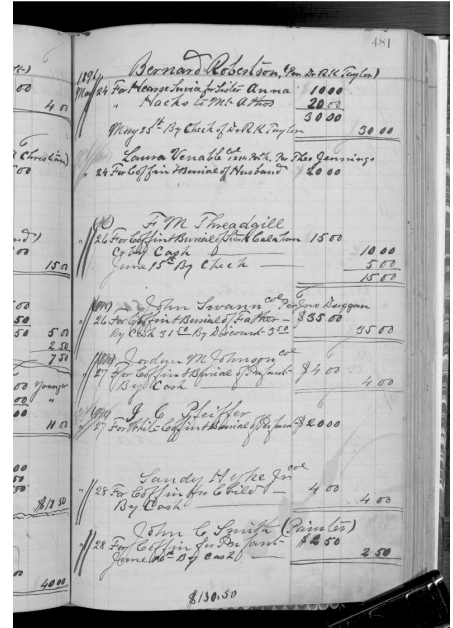 481
Bernard Robertson, (Per Dr R K Taylor)
1896
May 24 For Hearse Service for Sister Anna 10 00
" Hacks to Mt. Athos 20 00
30 00
May 25th By Check of Dr R K Taylor 30 00
Laura Venable col Per Theo Jennings
" 24 For Coffin & Burial of Husband 20 00
F M Threadgill
" 26 For Coffin & Burial of Calaham 15 00
Cr By Cash 10 00
June 15th By Check 5 00
15 00
John Swann col Per Jno Duggan
" 26 For Coffin & Burial of Father $35 00
By Cash 31 50 By Discount 3 50 35 00
Jordan M Johnson col
" 27 For Coffin & Burial of Infant $4 00
By Cash 4 00
J. C. Pfeiffer
" 27 For White Coffin & Burial of Infant $20 00
Sandy Hyke Jr col
" 28 For Coffin for Child 4 00
By Cash 4 00
John C Smith (Painter)
" 28 For Coffin for Infant $2 50
June 16th By Cash 2 50
$130.50